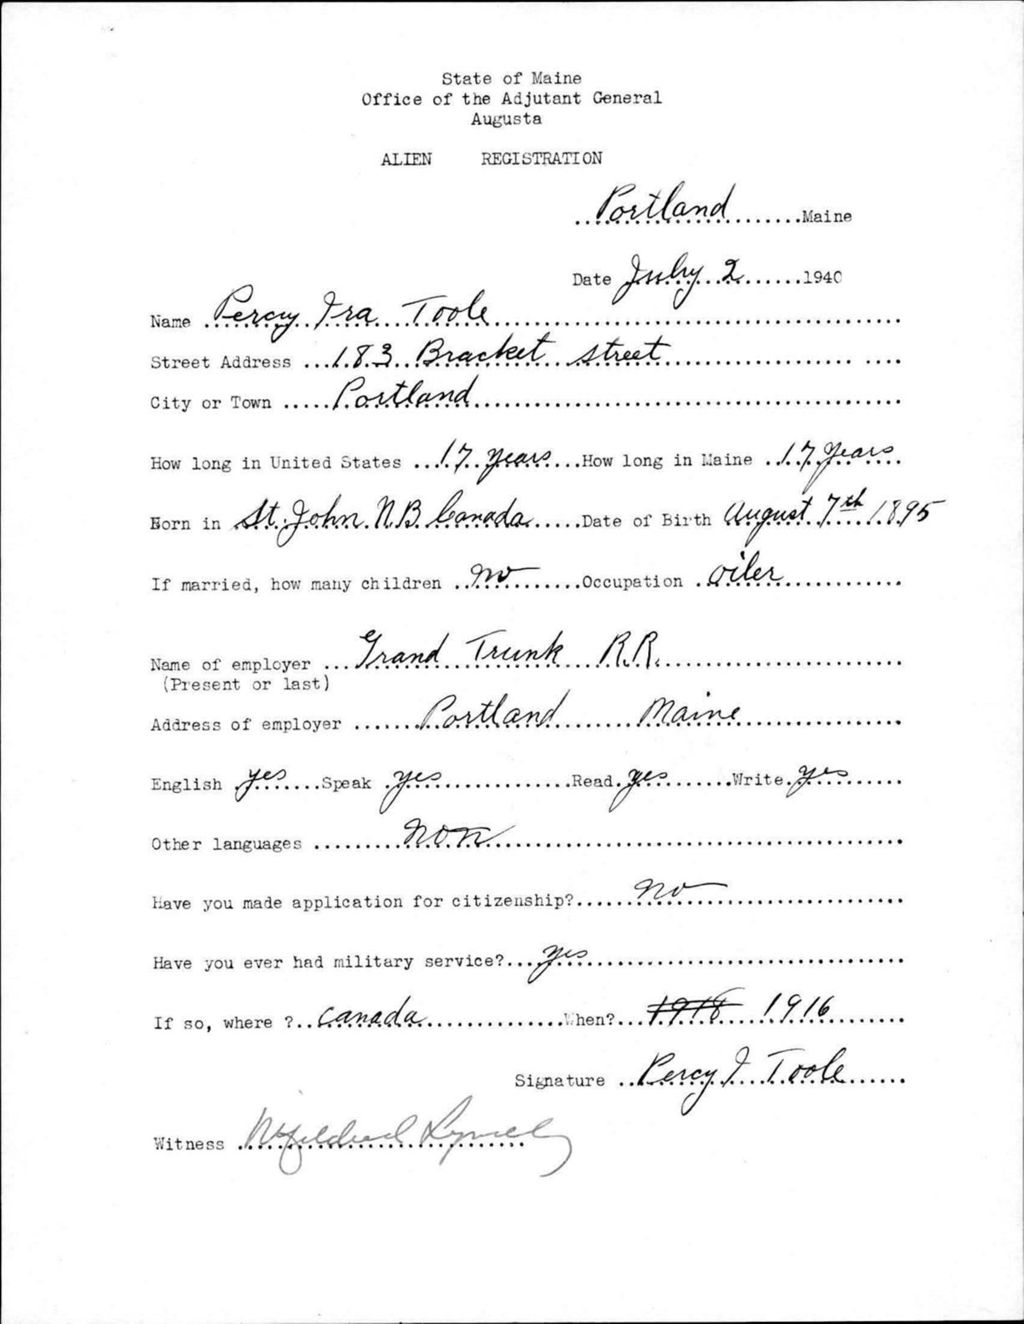 State of Maine
Office of the Adjutant General
Augusta
ALIEN REGISTRATION
Portland Maine
Date July 2 1940
Name Percy Ira Toole
Street Address 183 Bracket street
City or Town Portland
How long in United States 17 years How long in Maine 17 years
Born in St. John N.B. Canada Date of Birth August 7th 1895
If married, how many children no Occupation oiler
Name of employer Grand Trunk R.R.
(Present or last)
Address of employer Portland Maine
English yes Speak yes Read yes Write yes
Other languages non
Have you made application for citizenship? no
Have you ever had military service? yes
If so, where ? Canada When? 1918 1916
Signature Percy I. Toole
Witness Mildred